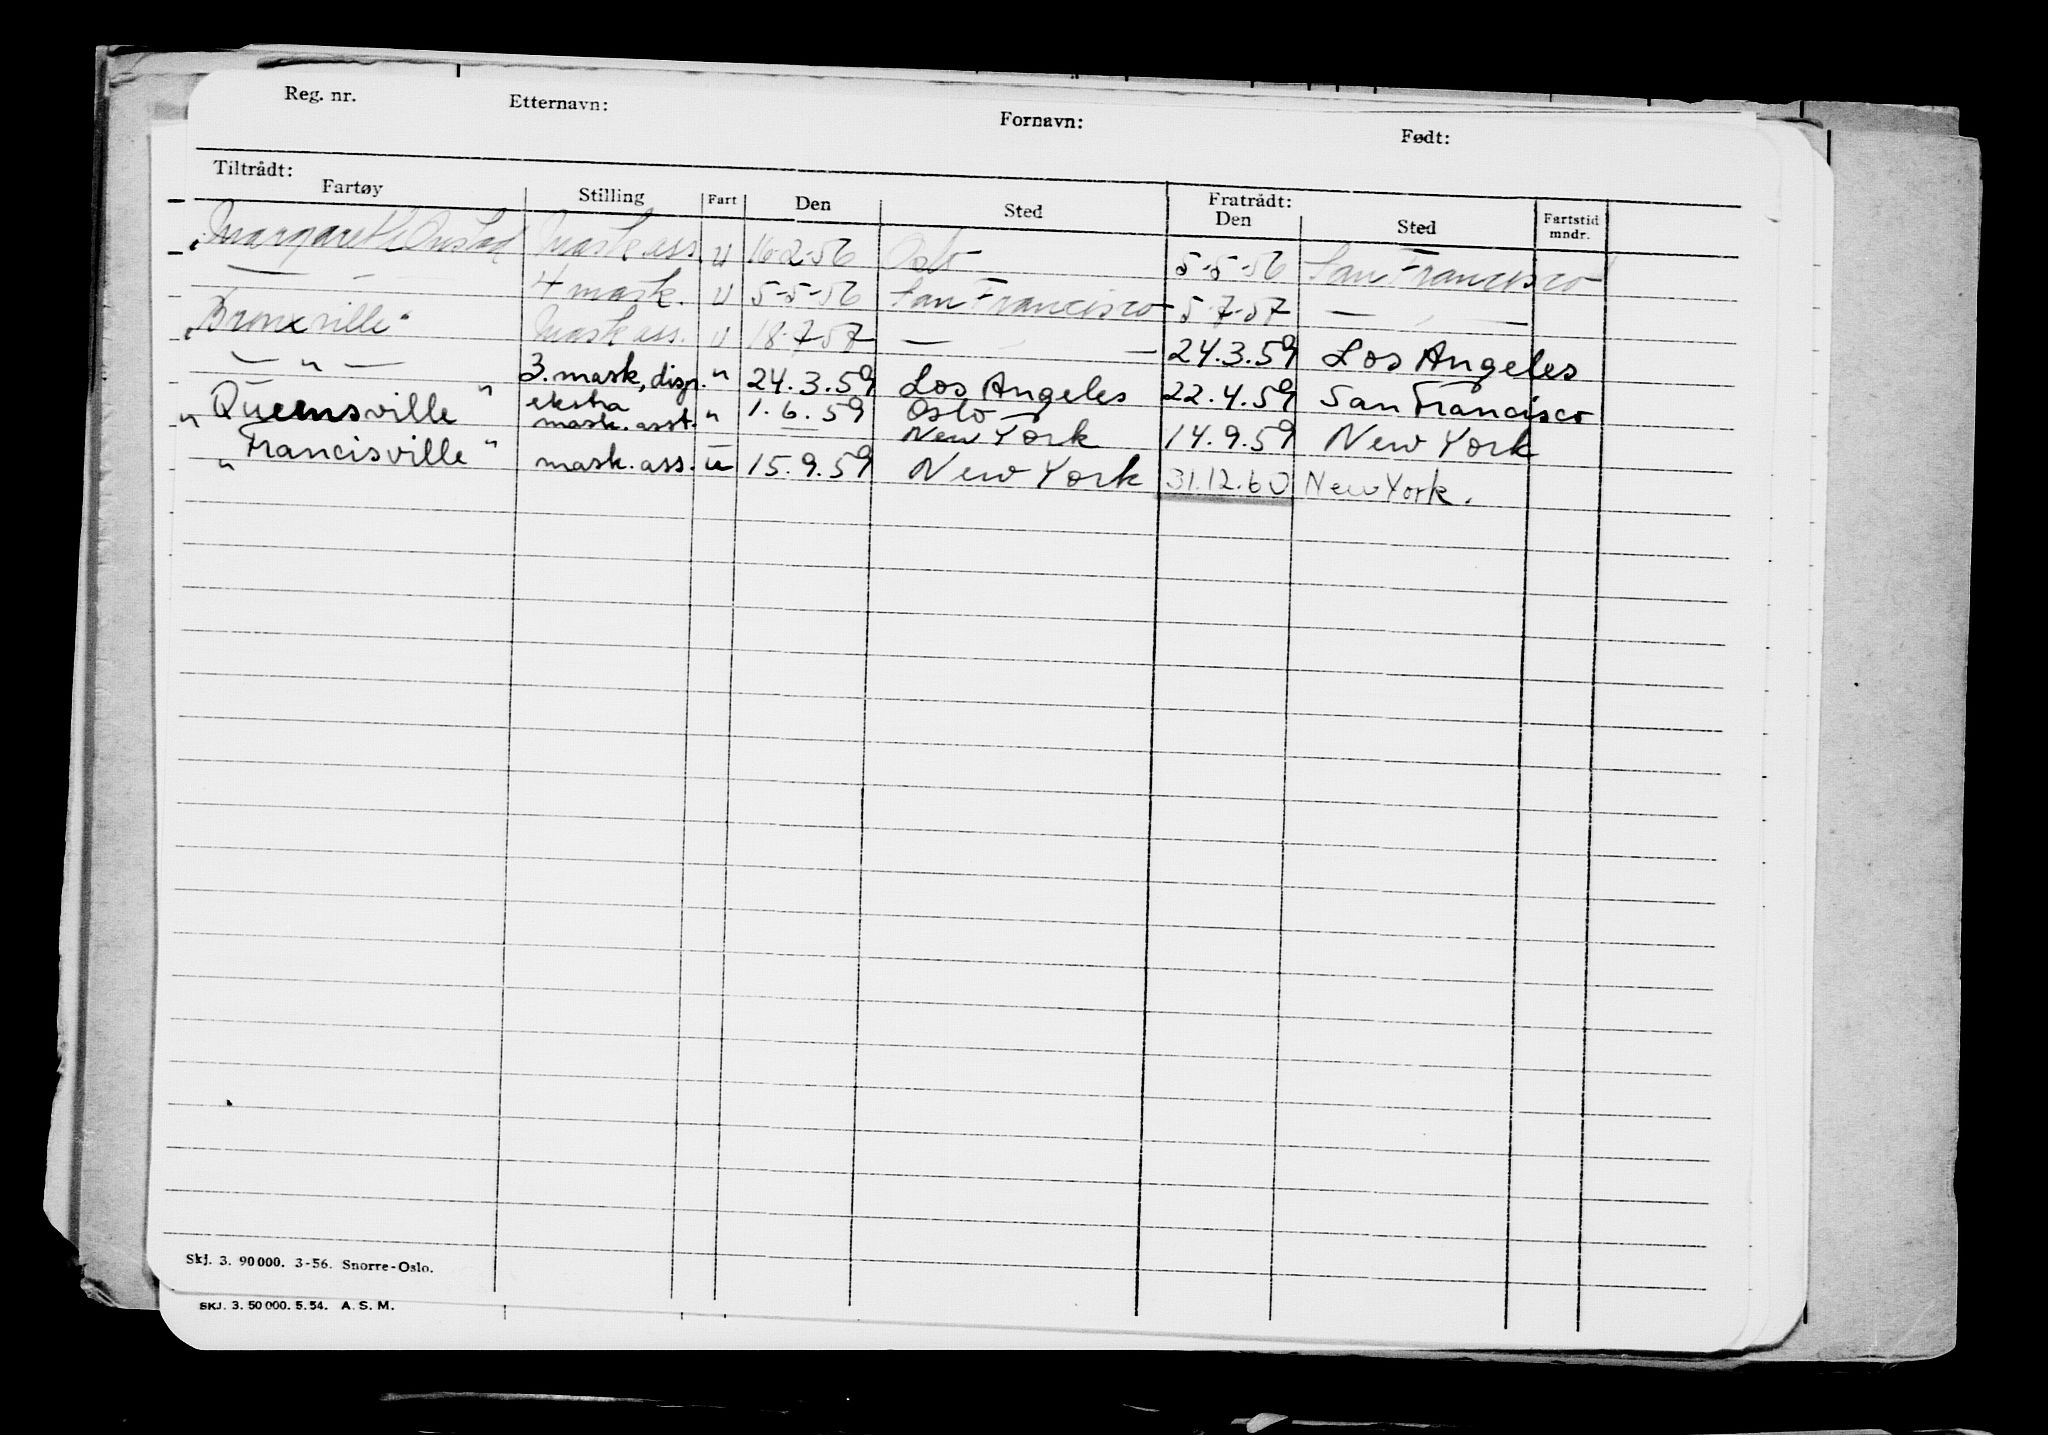 Reg. nr. Etternavn: Fornavn: Født:
Tiltrådt: Fratrådt:
Fartøy Stilling Fart Den Sted Den Sted Fartstid mndr.
"Margareth Onstad Mask ass. u 16-2-56 Oslo 5-5-56 San Francisco
— " — 4 mask. u 5-5-56 San Francisco 5-7-57 — " —
"Bronxville" Mask ass. u 18-7-57 — " — 24.3.59 Los Angeles
— " — 3. mask, disp. " 24.3.59 Los Angeles 22.4.59 San Francisco
"Queensville" ekstra mask. asst. " 1.6.59 Oslo New York 14.9.59 New York
"Francisville" mask. ass. u 15.9.59 New York 31.12.60 New York.
Skj. 3. 90000. 3-56. Snorre-Oslo.
SKJ. 3. 50 000. 5. 54. A. S. M.